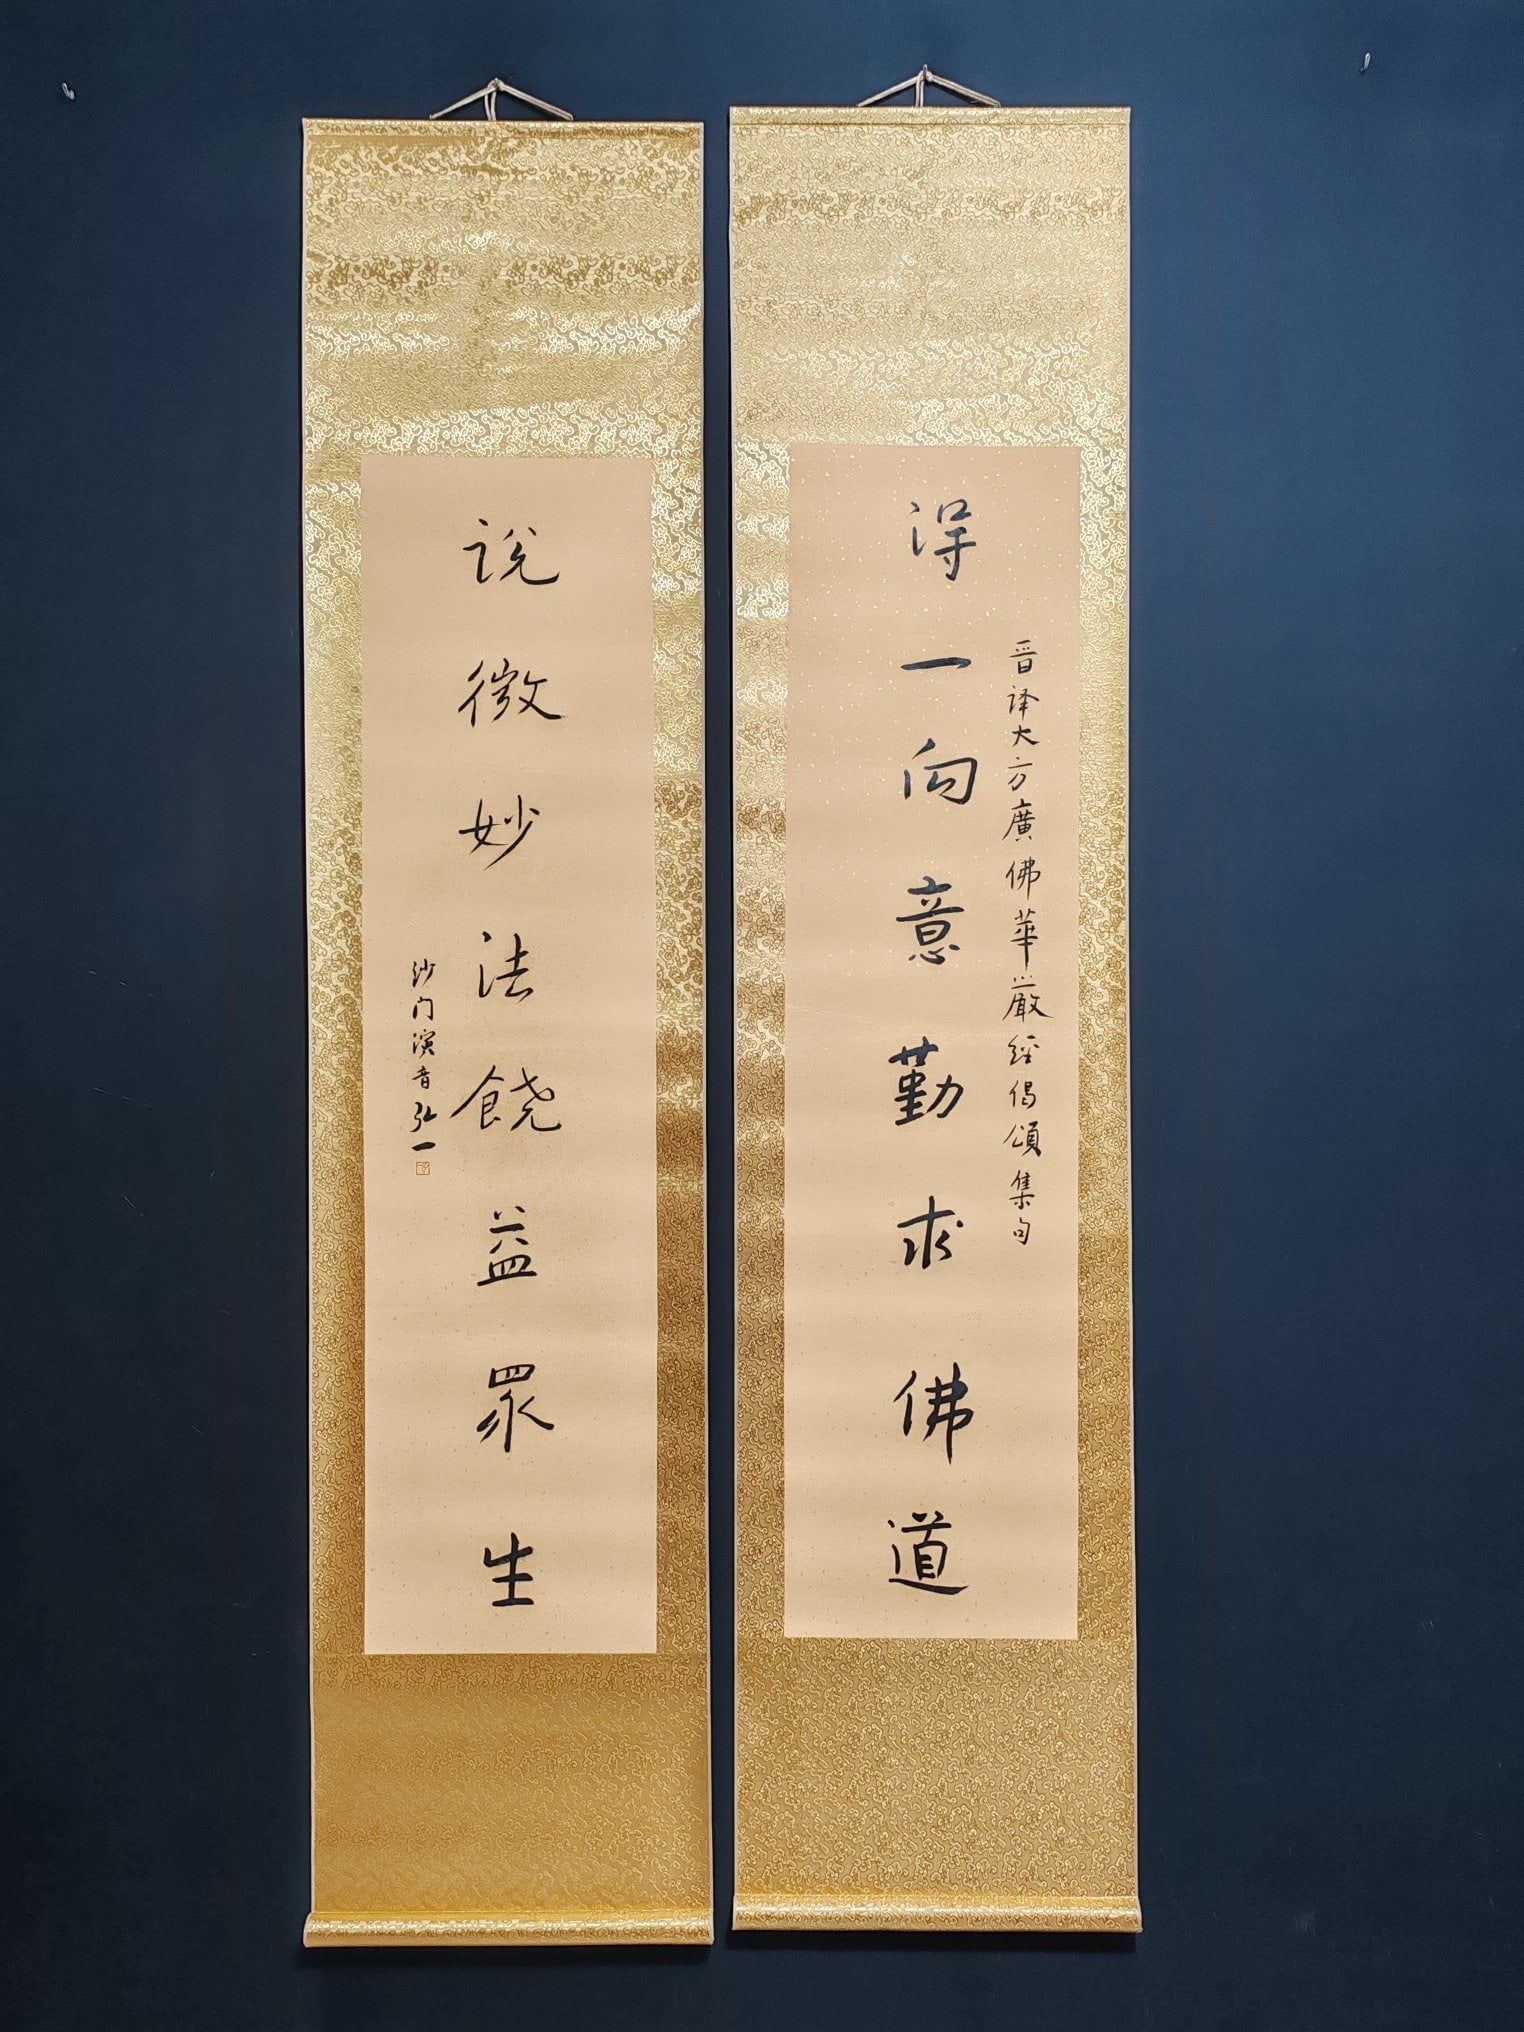 晋译大方廣佛華嚴經偈頌集句
得一向意勤求佛道
说微妙法饒益眾生
沙门演音弘一